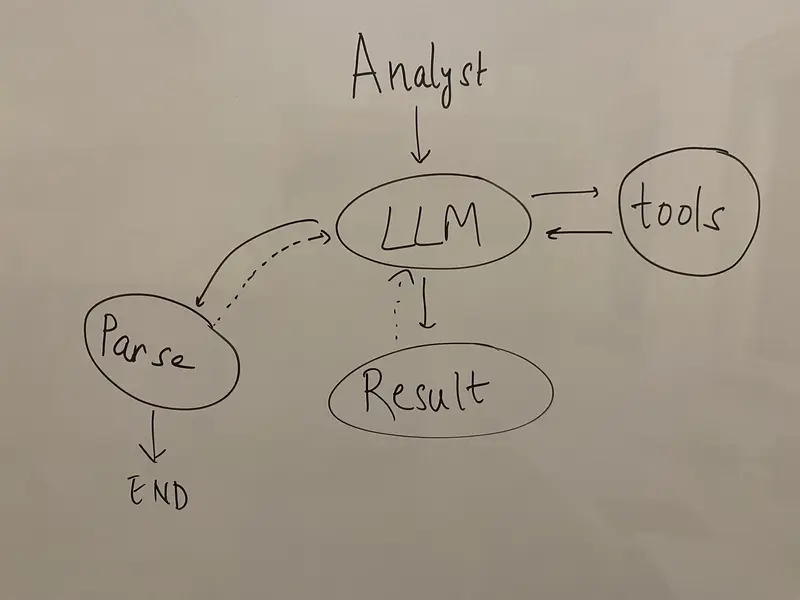 Analyst
LLM
tools
Parse
Result
END